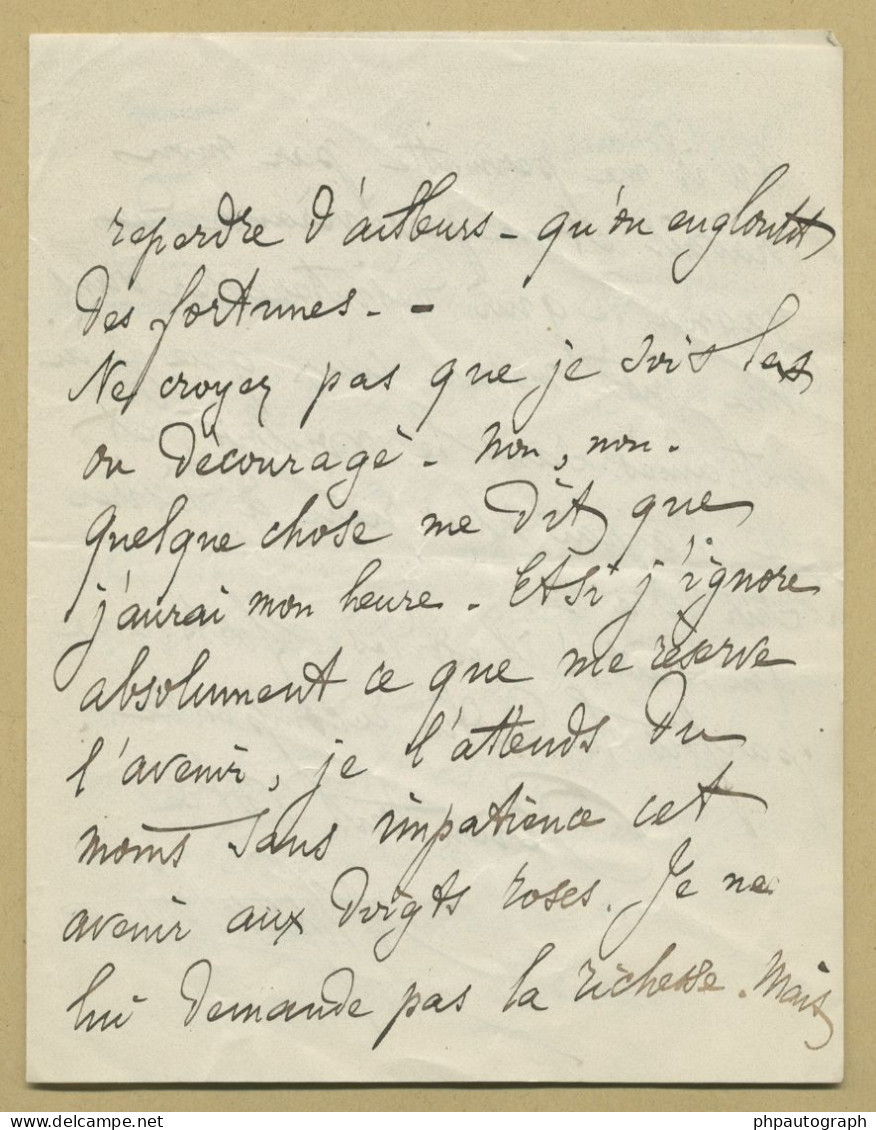 reperdre d'ailleurs - qu'on engloutit
des fortunes. -
Ne croyez pas que je sois las
ou découragé - Non, non.
Quelque chose me dit que
j'aurai mon heure. Et si j'ignore
absolument ce que me réserve
l'avenir, je l'attends du
moins sans impatience cet
avenir aux doigts roses. Je ne
lui demande pas la richesse. Mais
delcampe.net
phpautograph